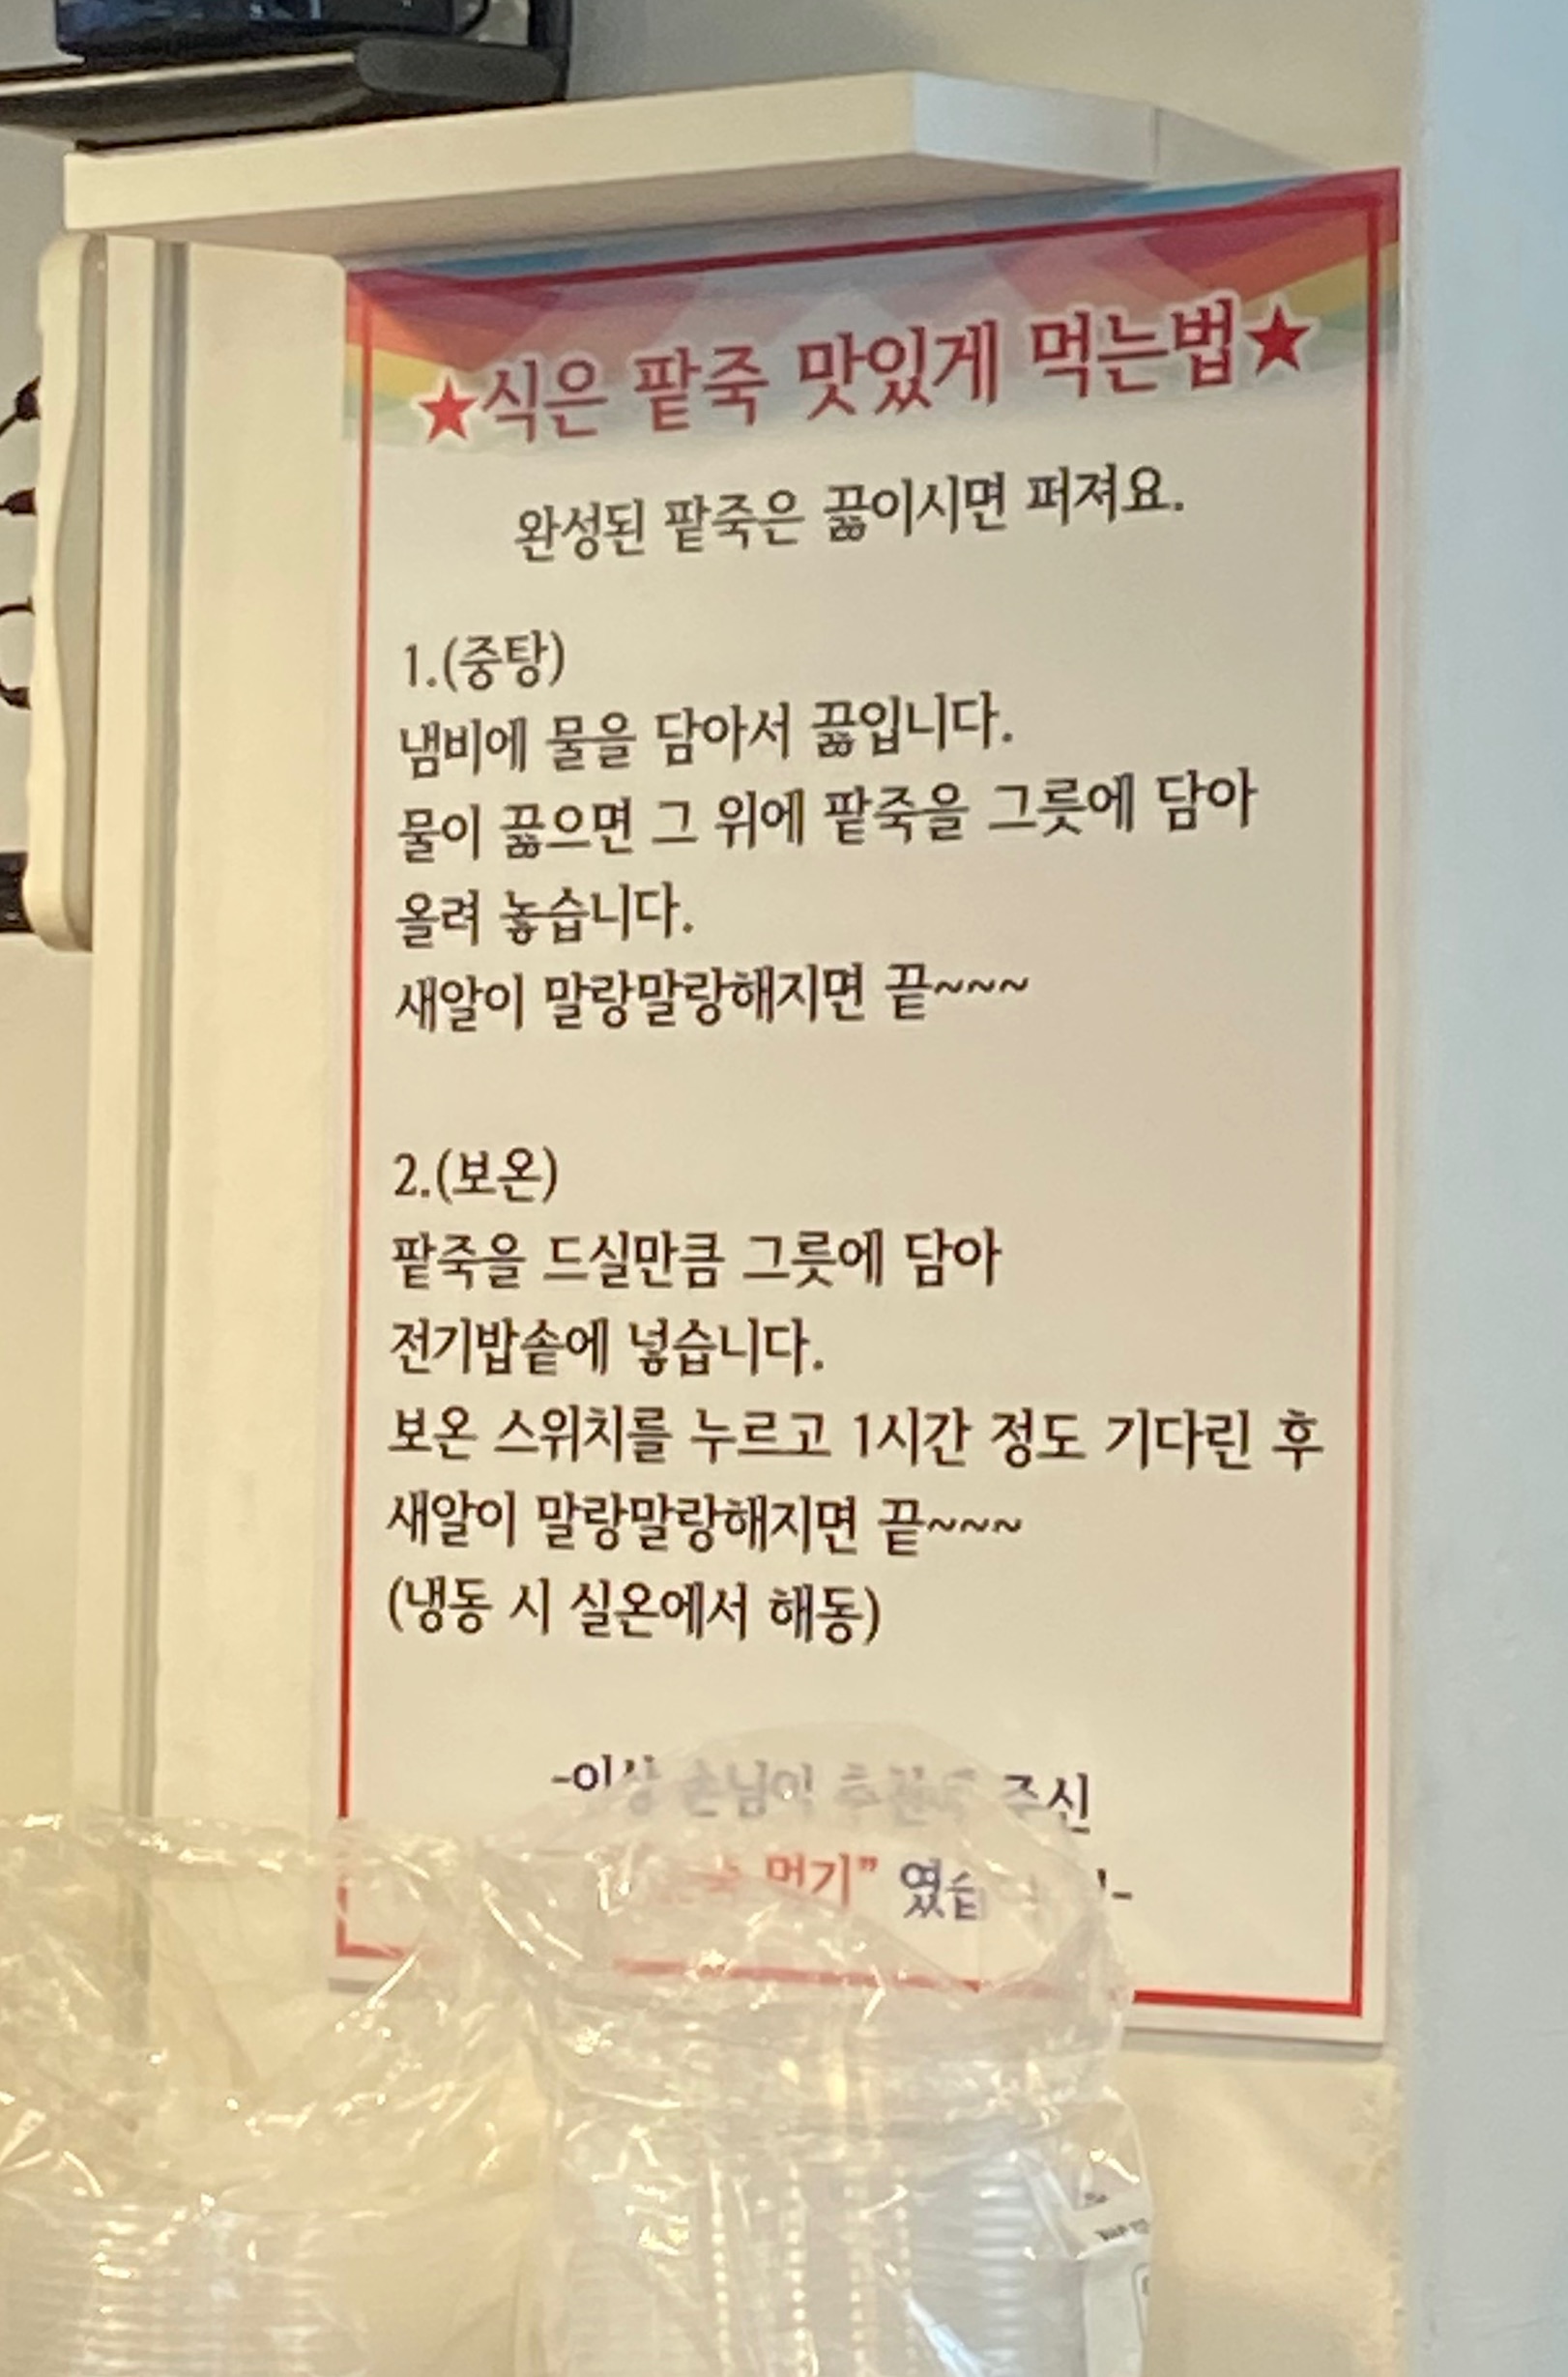 ★식은 팥죽 맛있게 먹는법★
완성된 팥죽은 끓이시면 퍼져요.
1.(중탕)
냄비에 물을 담아서 끓입니다.
물이 끓으면 그 위에 팥죽을 그릇에 담아
올려 놓습니다.
새알이 말랑말랑해지면 끝~~~
2.(보온)
팥죽을 드실만큼 그릇에 담아
전기밥솥에 넣습니다.
보온 스위치를 누르고 1시간 정도 기다린 후
새알이 말랑말랑해지면 끝~~~
(냉동 시 실온에서 해동)
-이상 손님이 주신
먹기”